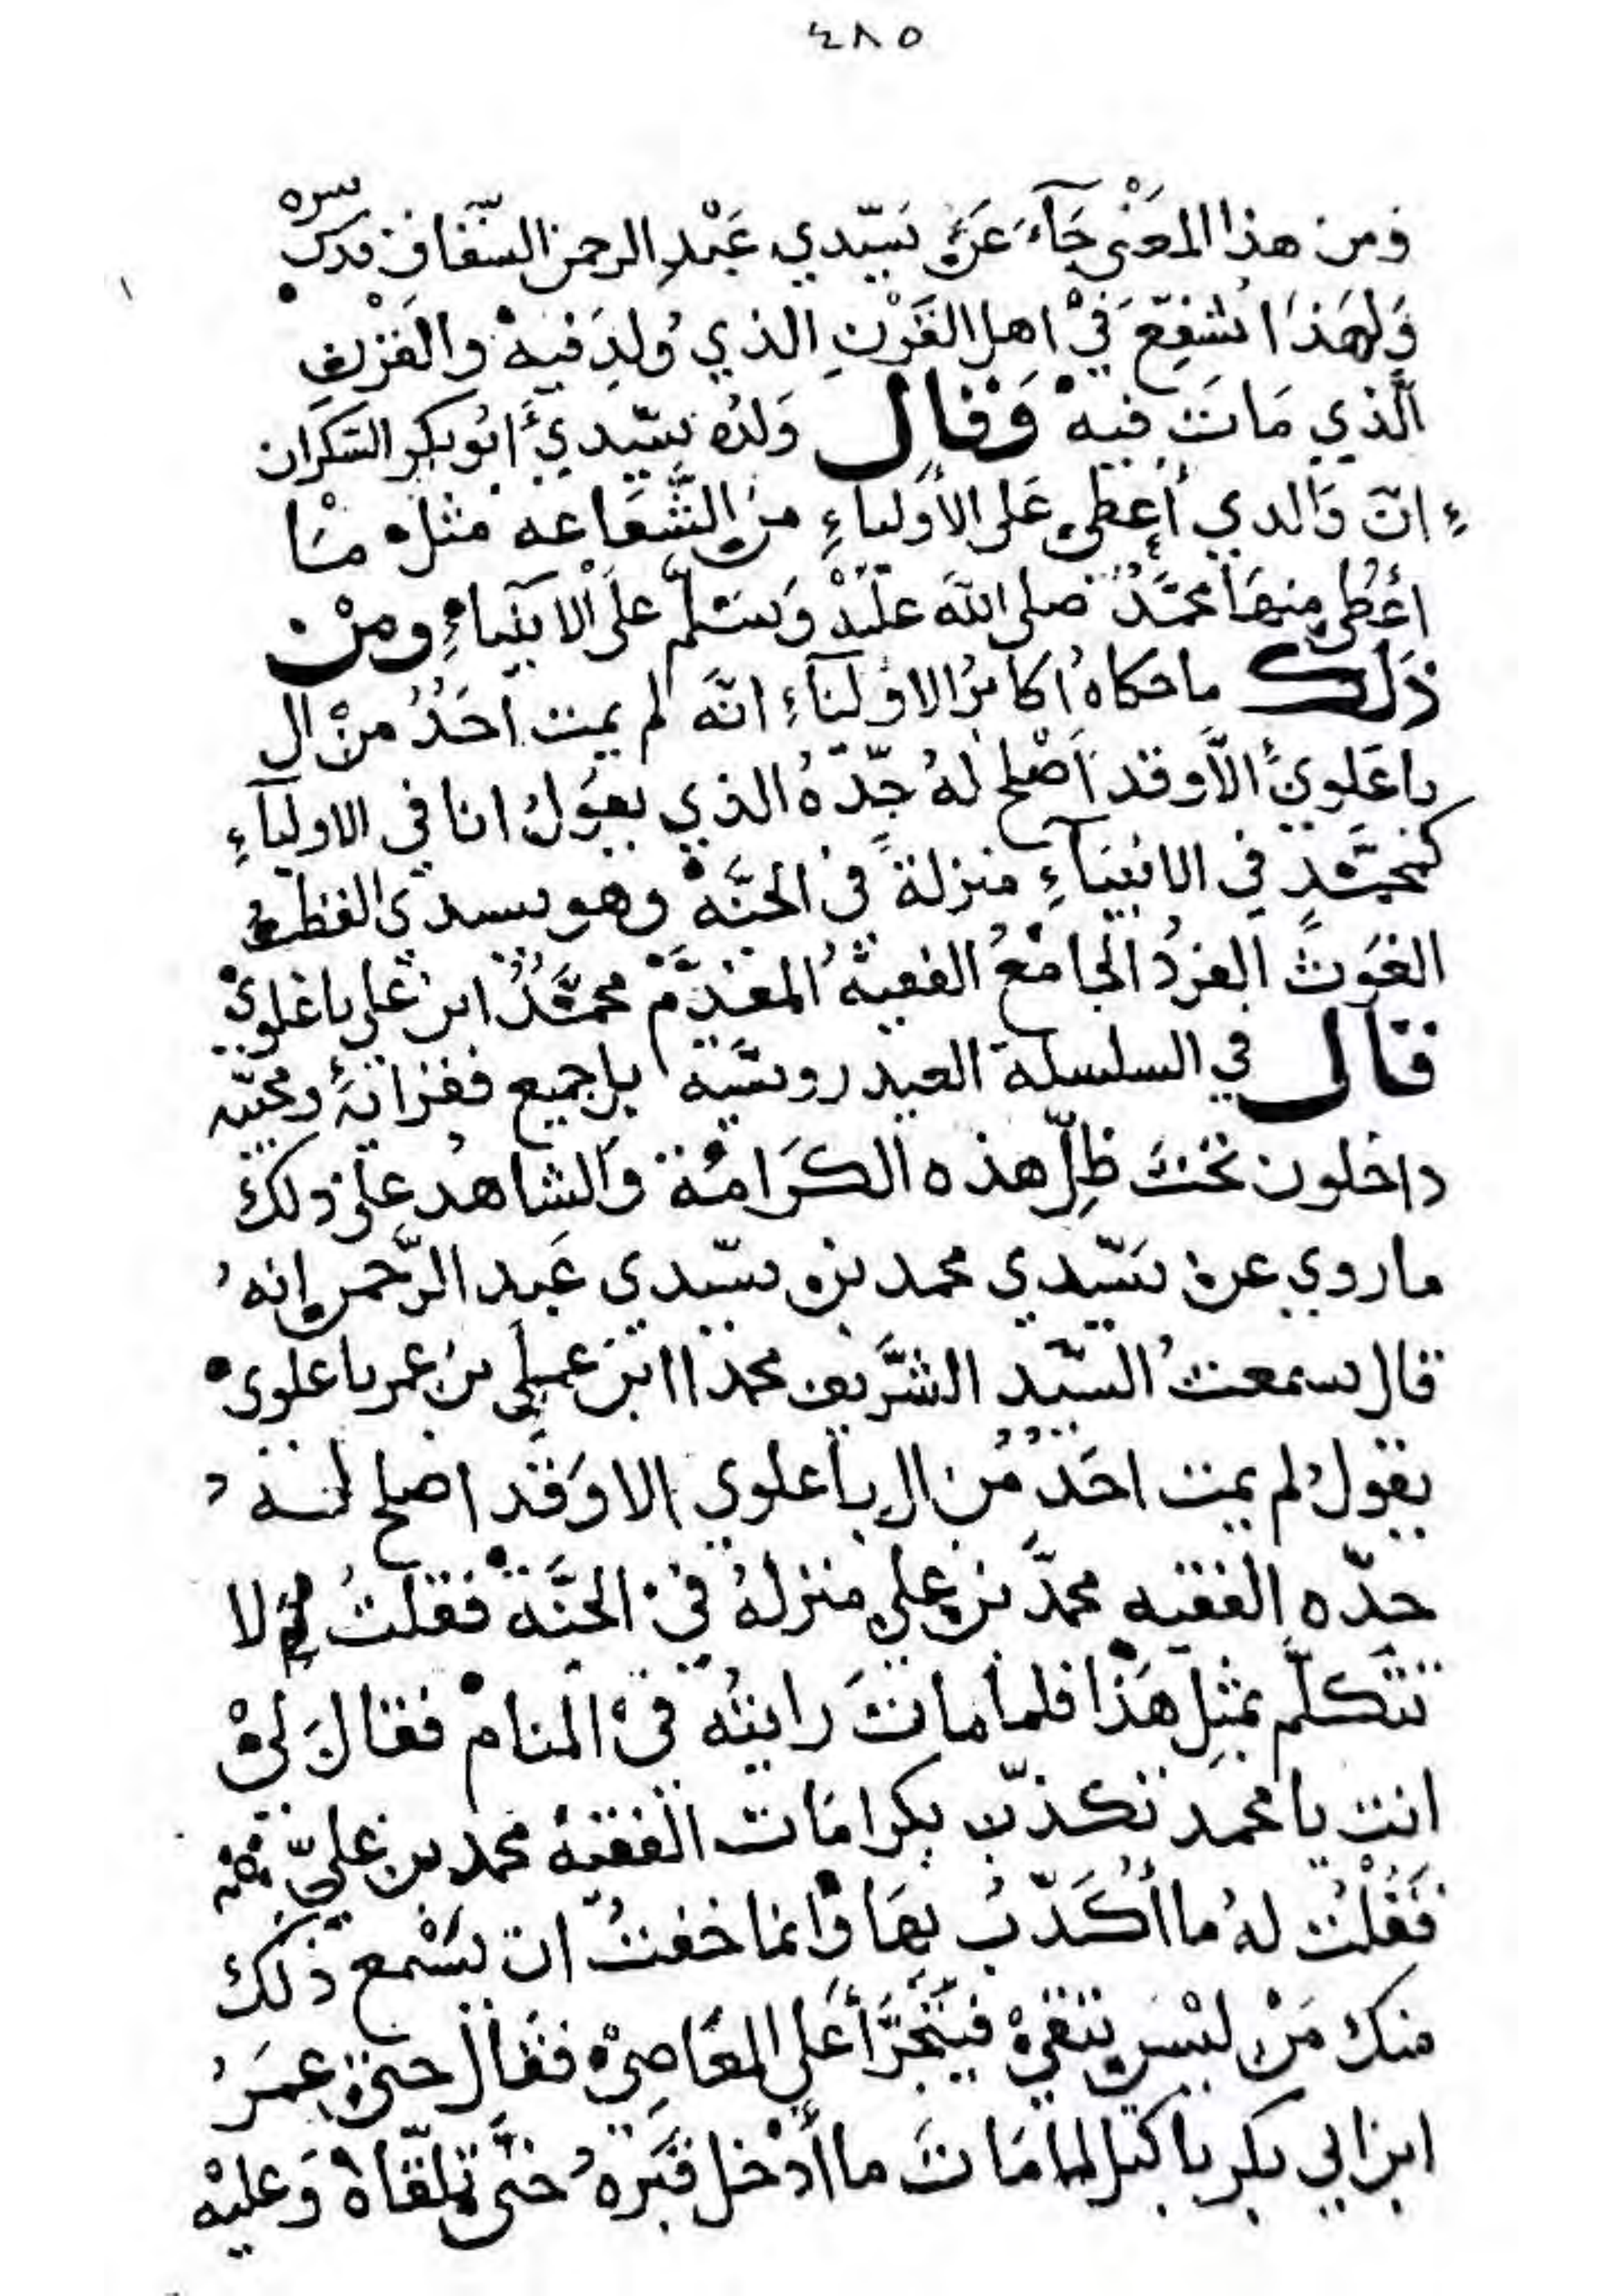 ٤٨٥
ومن هذا المعنى جآء عن سيّدي عبد الرحمن السّقاف قدس سره
ولهذا شفّع في اهل القرن الذي ولد فيه والقرن
الّذي مات فيه وقال ولده سيّدي ابو بكر السكران
انّ والدي أعطي على الأولياءِ من الشّفاعه مثل ما
أعطي منها محمّد صلى الله عليه وسلّم على الانبياءِ ومن
ذلك ما حكاه اكابر الاوليآء انّه لم يمت احد من ال
باعلوي الاّ وقد اصلح له جدّه الذي يقول انا في الاوليآءِ
كمحمّد في الانبيآءِ منزلة في الجنّة وهو سيدي القطب
الغوث الفرد الجامع الفقيه المقدّم محمّد ابن علي باعلوي
قال في السلسلة العيدروسيّه بل جميع فقرائه ومحبّيه
داخلون تحت ظلّ هذه الكرامة والشاهد على ذلك
ما روي عن سيّدي محمد بن سيّدي عبد الرّحمن انه
قال سمعت السيّد الشّريف محمدا ابن علي بن عمر باعلوي
يقول لم يمت احد من ال باعلوي الا وقد اصلح له
جدّه الفقيه محمّد بن علي منزله في الجنّة فقلت لم لا
تتكلّم بمثل هذا فلما مات رايته في المنام فقال لي
انت يا محمد تكذّب بكرامات الفقيه محمد بن عليّ
فقلت له ما أكذّب بها وانما خفت ان يسمع ذلك
منك من ليس يتقي فيتجرّأ على المعاصي فقال حتى عمر
ابن ابي بكر باكيل لما مات ما أدخل قبره حتّى تلقّاه وعليه